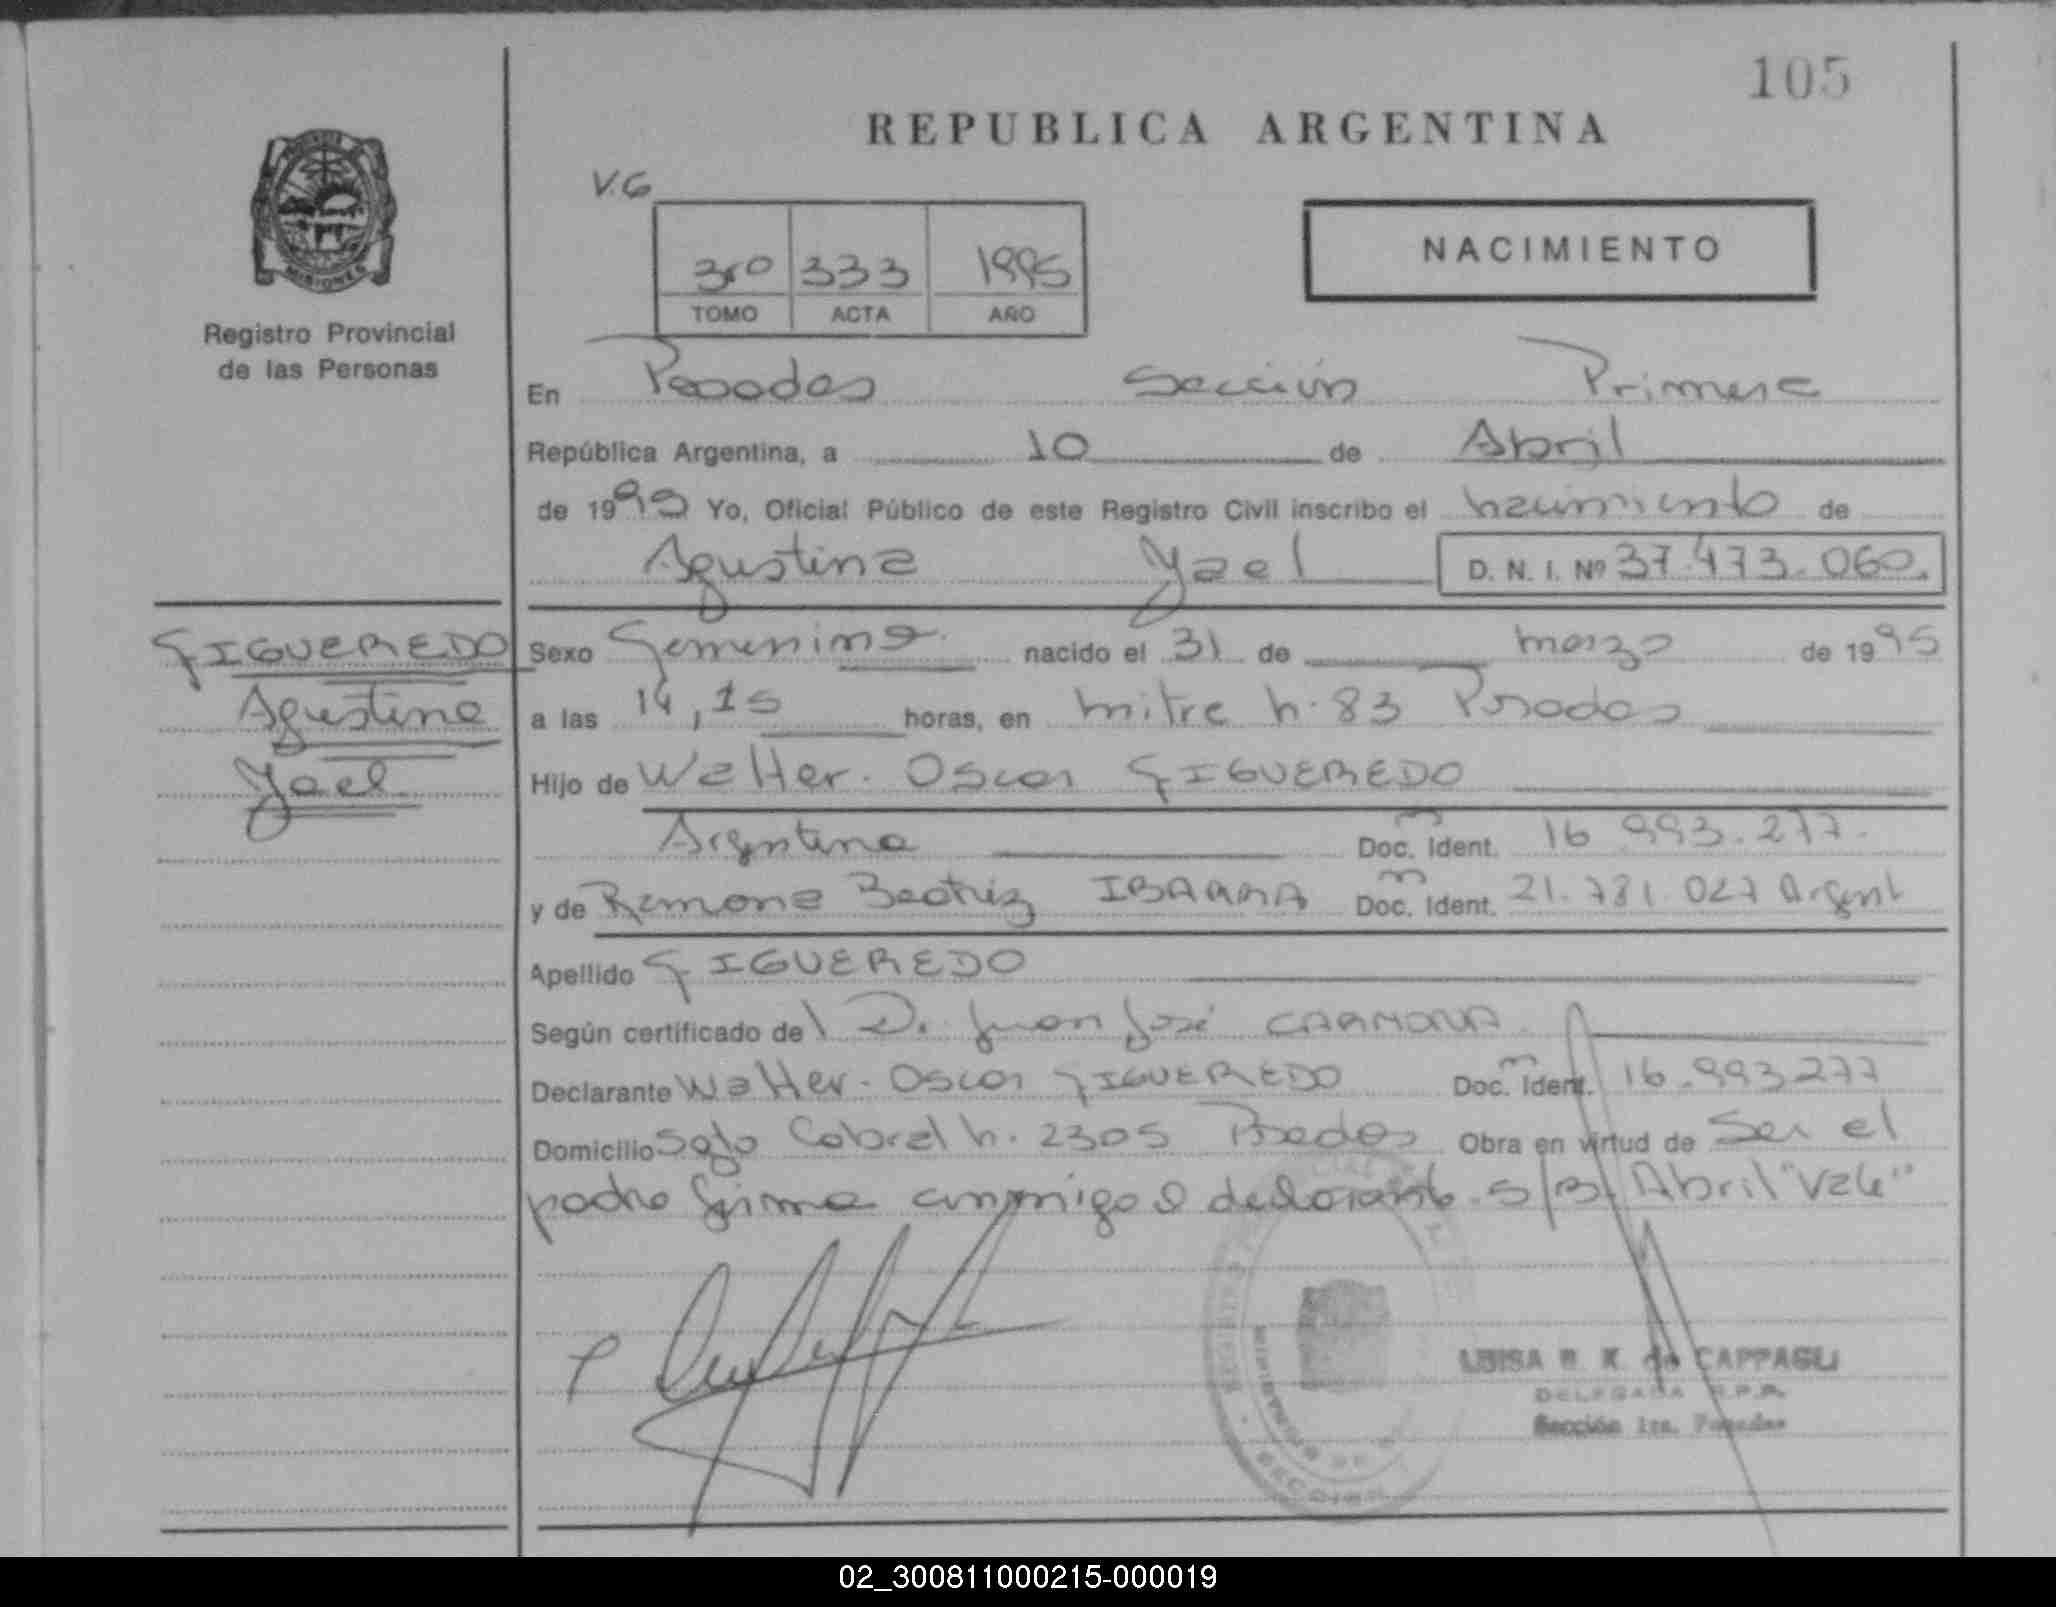 105
REPUBLICA ARGENTINA
V.G
3ro 333 1995
TOMO ACTA AÑO
NACIMIENTO
MISIONES
Registro Provincial
de las Personas
En Posadas Sección Primera
República Argentina, a 10 de Abril
de 1995 Yo, Oficial Público de este Registro Civil inscribo el nacimiento de
Agustina Yael D. N. I. Nº 37.473.060.
FIGUEREDO
Agustina
Yael
Sexo Femenina nacido el 31 de marzo de 1995
a las 14,15 horas, en mitre n. 83 Posadas
Hijo de Walter Oscar FIGUEREDO
Argentina Doc. Ident. 16 993.277.
y de Ramona Beatriz IBARRA Doc. Ident. 21.781.027 Argent
Apellido FIGUEREDO
Según certificado de Dr. Juan José CARMONA
Declarante Walter Oscar FIGUEREDO Doc. Ident. 16.993277
Domicilio Sgto Cabral n. 2305 Posadas Obra en virtud de Ser el
padre firma conmigo el declarante. S/B. Abril "Vale"
LUISA R. K. de CAPPAGLI
DELEGADA R.P.P.
Sección 1ra. Posadas
02_300811000215-000019